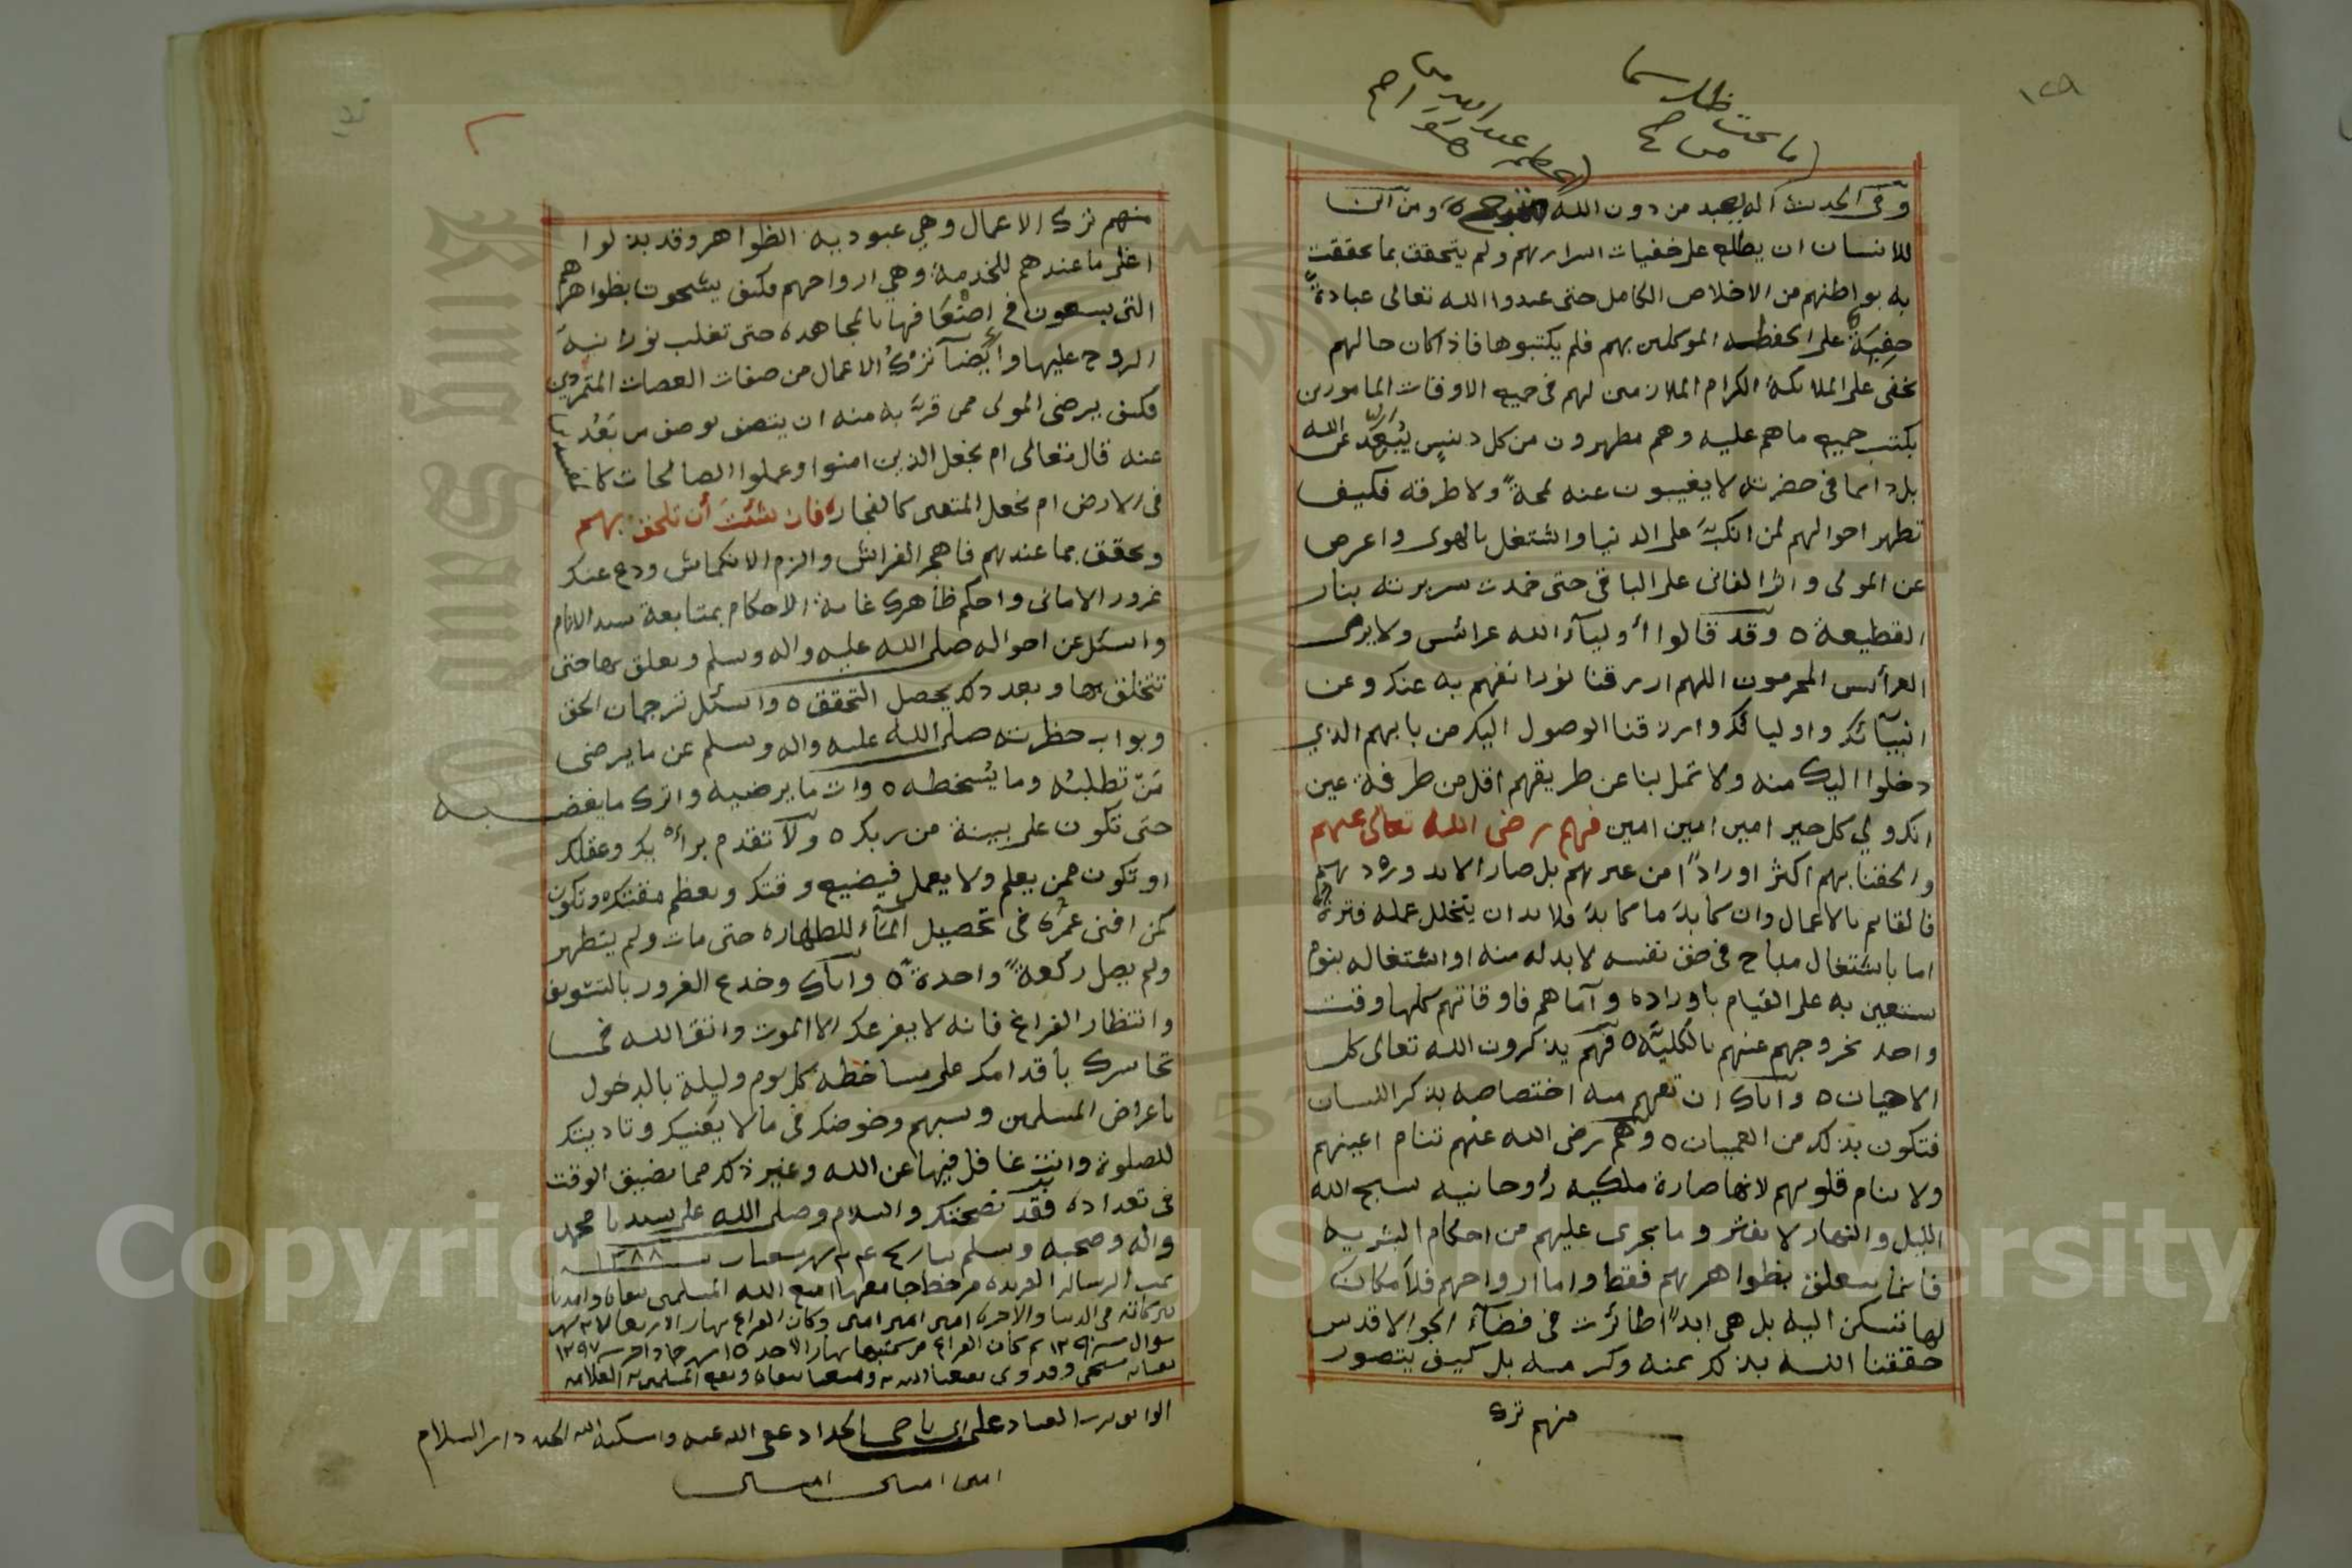 ١٢٩
ما تحت ظل سما
وفي الحديث اله يعبد من دون الله ومن اين
للانسان ان يطلع على خفيات اسرارهم ولم يتحقق بما تحققت
به بواطنهم من الاخلاص الكامل حتى عبدوا الله تعالى عبادةً
خفِيَةً على الحفظه الموكلين بهم فلم يكتبوها فاذا كان حالهم
يخفى على الملائكة الكرام الملازمين لهم في جميع الاوقات المامورين
بكتب جميع ماهم عليه وهم مطهرون من كل دنيس يُبَعِّد عن الله
بل دائما في حضرته لا يغيبون عنه لمحةً ولا طرفه فكيف
تظهر احوالهم لمن انكبَّ على الدنيا واشتغل بالهوى واعرض
عن المولى واثر الفاني على الباقي حتى خمدت سريرته بنار
القطيعة ٥ وقد قالوا أولياء الله عرائس ولا يرى
العرأئس المجرمون اللهم ارزقنا نورا نفهم به عنك وعن
انبيآئك واوليائك وارزقنا الوصول اليك من بابهم الذي
دخلوا اليك منه ولا تمل بنا عن طريقهم اقل من طرفة عين
انك ولي كل خير امين امين امين فهم رضى الله تعالى عنهم
والحقنا بهم اكثر اوراداً من غيرهم بل صار الابد ورد بهم
فالقائم بالاعمال وان كابدَ ما كابدَ فلابد ان يتخلل عمله فترة
اما باشتغال مباح في حق نفسه لابد له منه او اشتغاله بنوم
يستعين به على القيام باوراده وآما هم فاوقاتهم كلها وقت
واحد لخروجهم عنهم بالكليَّة ٥ فهم يذكرون الله تعالى كل
الاحيان ٥ واياك ان تفهم منه اختصاصه بذكر اللسان
فتكون بذلك من العميان ٥ وهم رضى الله عنهم تنام اعينهم
ولا تنام قلوبهم لانها صارة ملكيه رُوحانيه تسبح الله
الليل والنهار لا تفتر وما يجرى عليهم من احكام البشريه
فانما يتعلق بظواهرهم فقط واما ارواحهم فلا مكان
لها تسكن اليه بل هي ابداً طائرت في فضآء الجو الاقدس
حققنا الله بذلك بمنه وكرمه بل كيف يتصور
منهم ترك
منهم ترك الاعمال وهي عبوديه الظواهر وقد بذلوا
اغلى ما عندهم للخدمة وهي ارواحهم فكيف يشحون بظواهرهم
التي يسعون في اضعافها بالمجاهده حتى تغلب نورانيةَ
الروح عليها وأيضآ تركُ الاعمال من صفات العصات المتمردين
فكيف يرضى المولى ممن قربَّه منه ان يتصف بوصف من بَعُد
عنه قال تعالى ام نجعل الذين امنوا وعملوا الصالحات كالمفسدين
في الارض ام نجعل المتقين كالفجار فان شئتَ أن تلحق بهم
وتحقق بما عندهم فاهجر الفراش والزم الانكماش ودع عنك
غرور الاماني واحكم ظاهرك غاية الاحكام بمتابعة سيد الانام
واسئل عن احواله صلى الله عليه واله وسلم وتعلق بها حتى
تتخلق بها وبعد ذلك يحصل التحقق ٥ واسئل ترجمان الحق
وبواب حظرته صلى الله عليه واله وسلم عن ما يرضى
مَنْ تطلبُه وما يُسخطه ٥ وات ما يرضيه واترك ما يغضبه
حتى تكون على بينة من ربك ٥ ولا تقدم برأيك وعقلك
او تكون ممن يعلم ولا يعمل فيضيع وقتك ويعظم مقتك وتكون
كمن افنى عمُرَه في تحصيل المآء للطهاره حتى مات ولم يتطهر
ولم يصل ركعةً واحدةً ٥ واياك وخدع الغرور بالتسويف
وانتظار الفراغ فانه لا يفرغك الا الموت واتق الله في
تجاسرك بأقدامك على مساخطه كل يوم وليلة بالدخول
باعراض المسلمين وسبهم وخوضك في مالا يعنيك وتاديتك
للصلوة وانت غافل فيها عن الله وغير ذلك مما يضيق الوقت
في تعداده فقد نصحتك والسلام وصلى الله على سيدنا محمد
واله وصحبه وسلم ١٢٨٨
تمت الرساله الفريده من خط جامعها امتع الله المسلمين
في الدنيا والاخرة امين امين امين وكان الفراغ نهار الاربعا
شوال كان الفراغ من كتبها نهار الاحد ١٥ ١٢٩٧
الحداد عفى الله عنه واسكنه الله الجنه دار السلام
امين امين امين